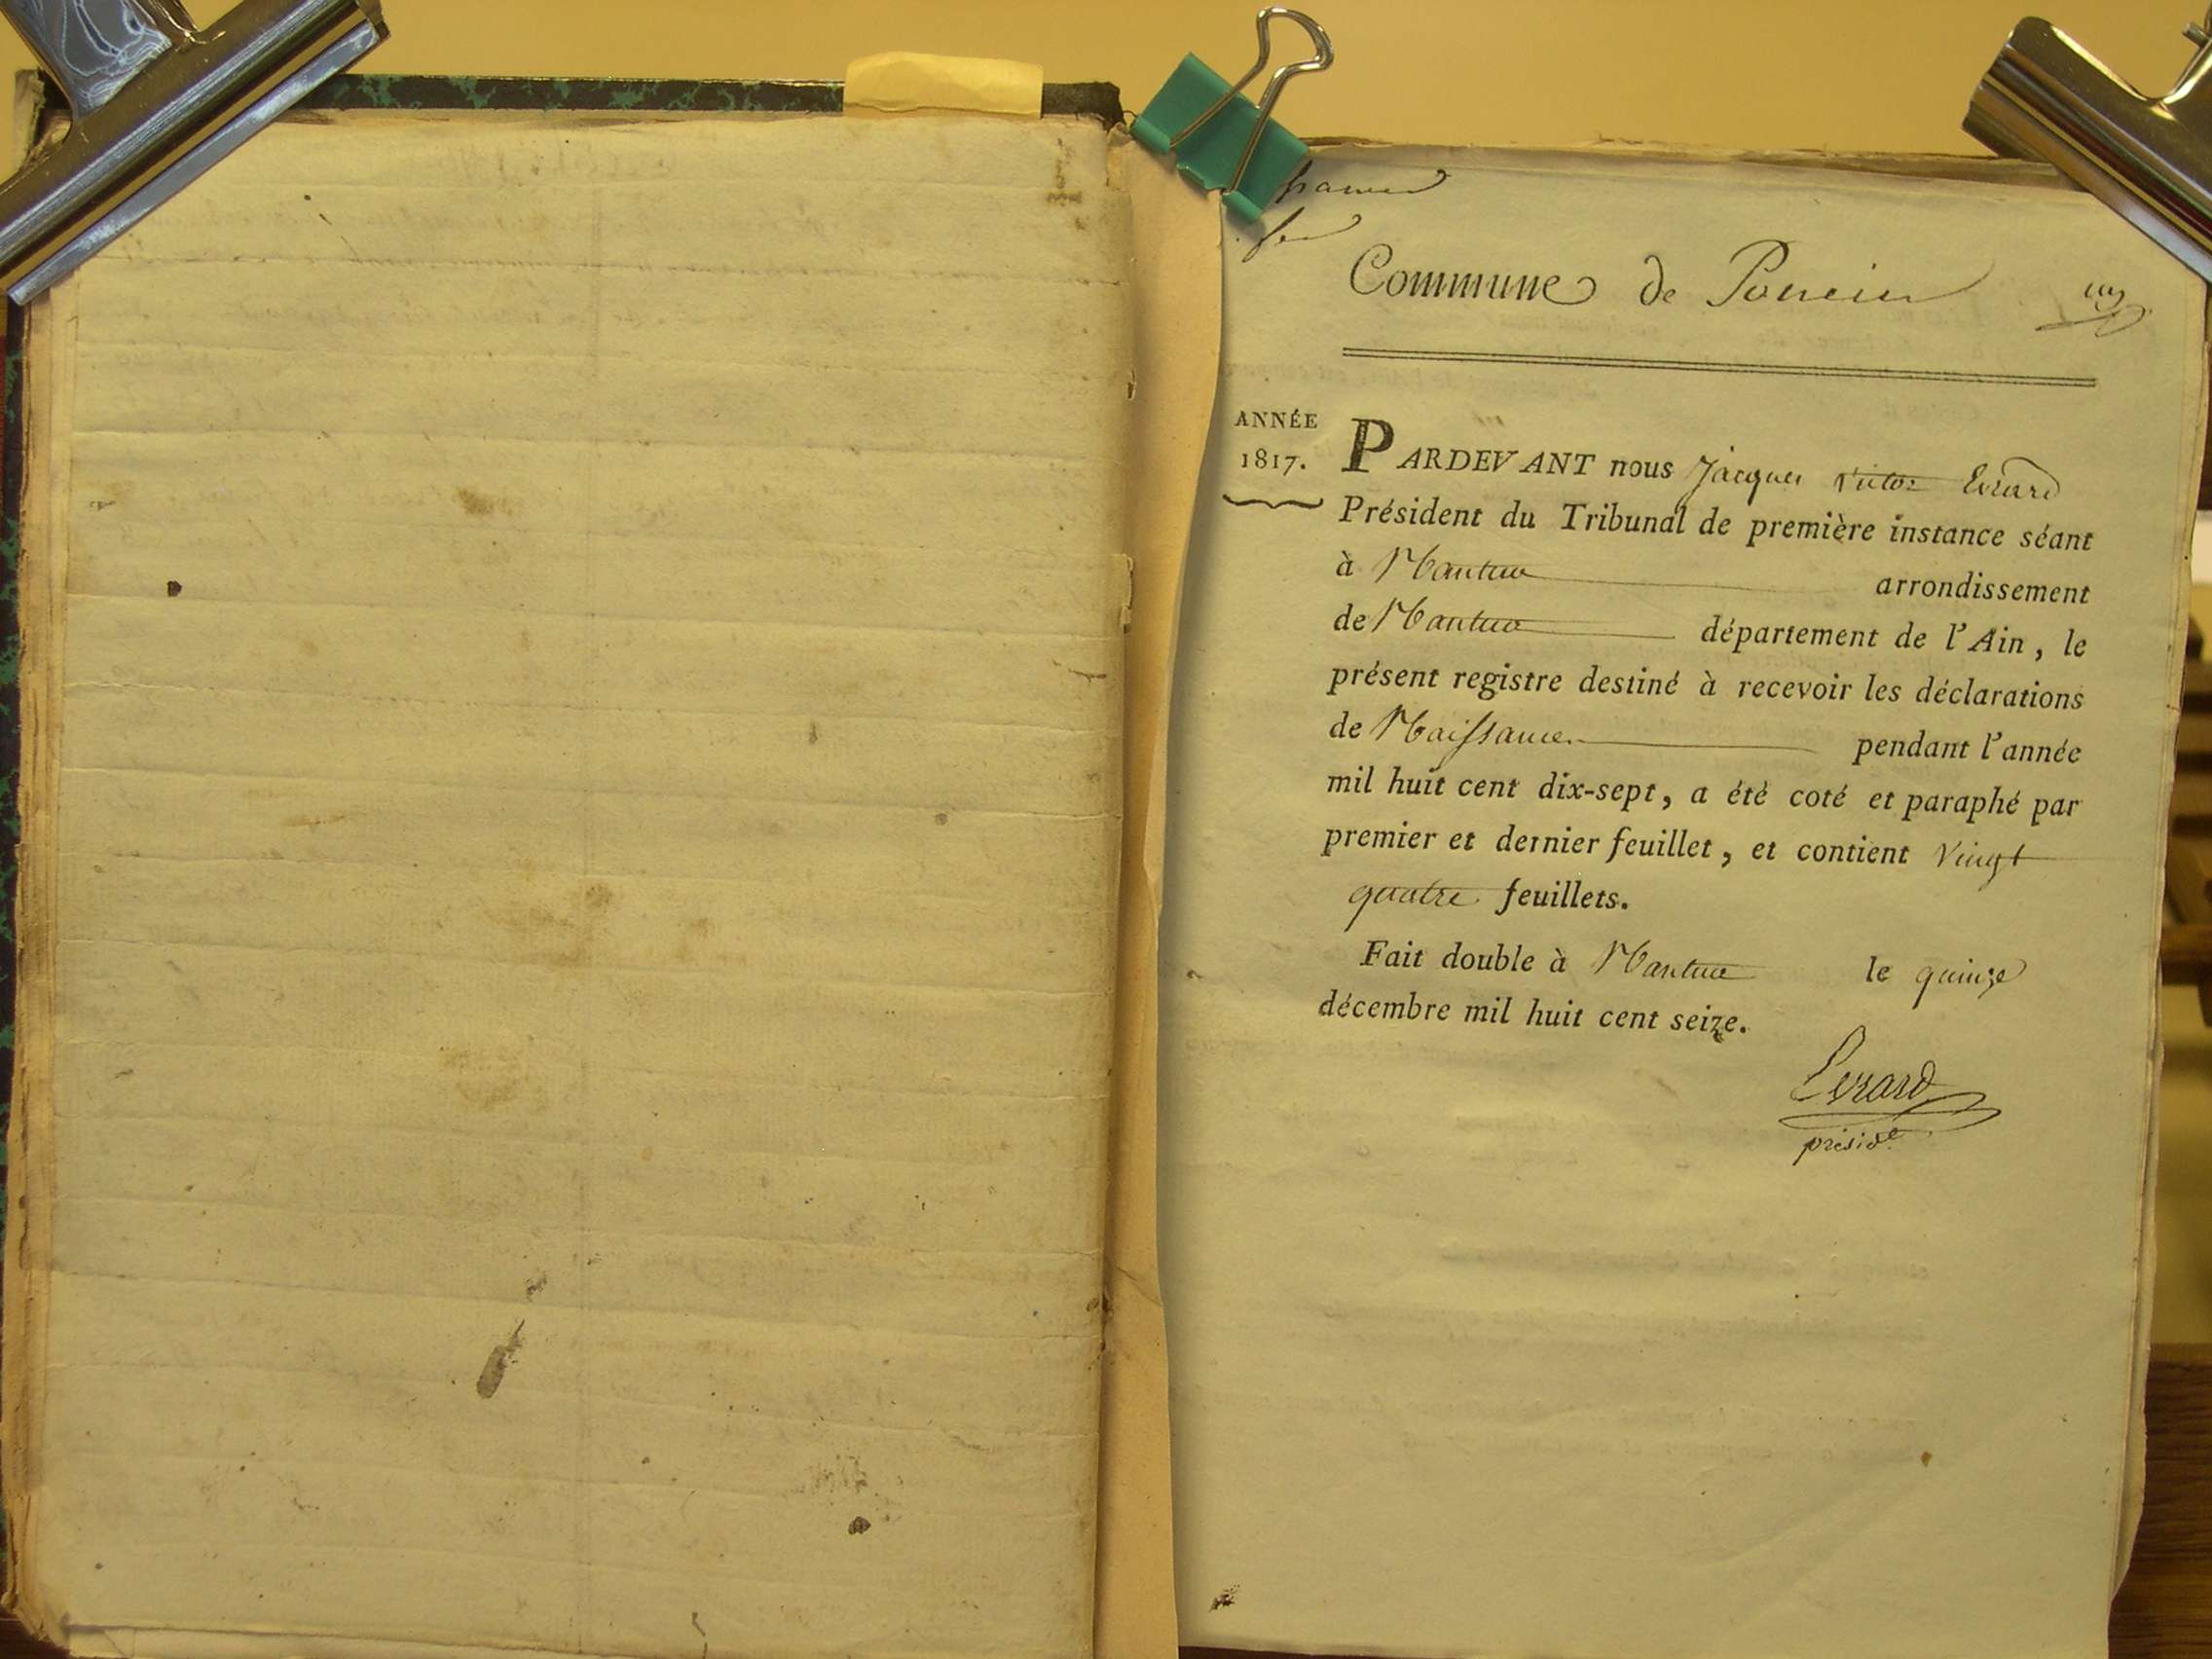 Commune de Poncin
ANNÉE
1817.
PARDEVANT nous Jacques Victor Evrard
Président du Tribunal de première instance séant
à Nantua arrondissement
de Nantua département de l'Ain, le
présent registre destiné à recevoir les déclarations
de Naissances pendant l'année
mil huit cent dix-sept, a été coté et paraphé par
premier et dernier feuillet, et contient Vingt
quatre feuillets.
Fait double à Nantua le quinze
décembre mil huit cent seize.
Evrard
préside